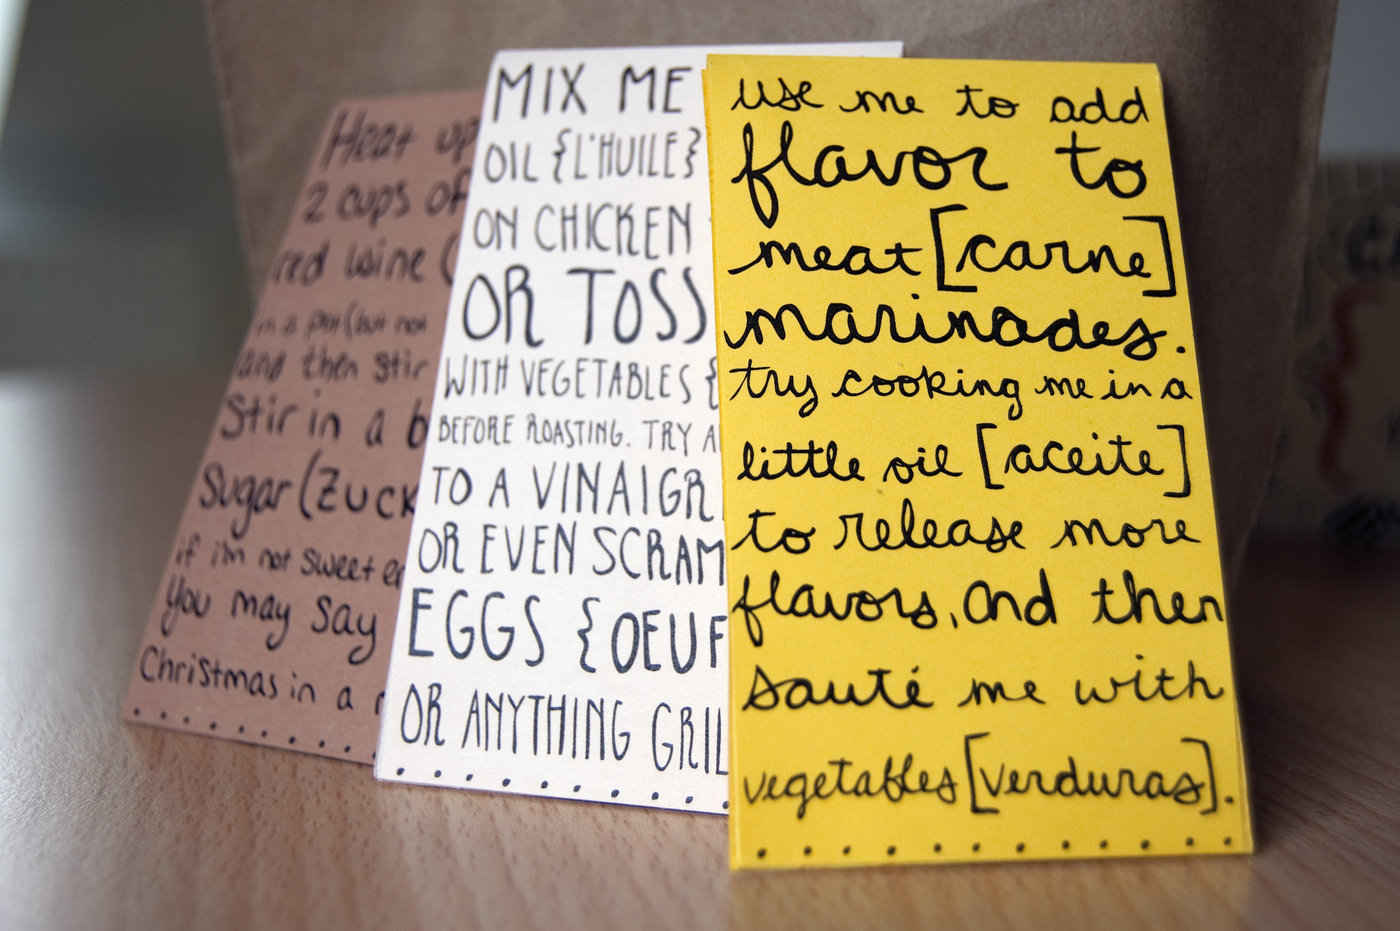 Heat up
2 cups of
red wine (
in a pot (but not
and then stir
Stir in a b
Sugar (Zuck
if i'm not sweet en
You may say
Christmas in a
MIX ME
OIL {L'HUILE}
ON CHICKEN
OR TOSS
WITH VEGETABLES {
BEFORE ROASTING. TRY A
TO A VINAIGR
OR EVEN SCRAM
EGGS {OEUF
OR ANYTHING GRIL
use me to add
flavor to
meat [carne]
marinades.
try cooking me in a
little oil [aceite]
to release more
flavors, and then
sauté me with
vegetables [verduras].